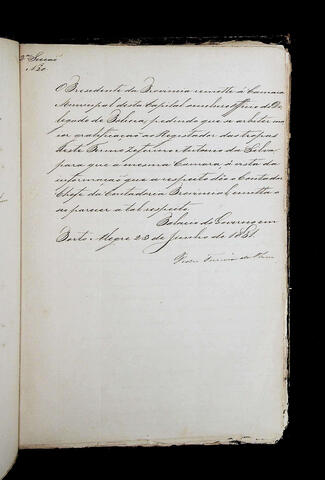 2ª Secção
N.
O Presidente da Provincia remette á Camara
Municipal desta Capital o officio do De
legado de Policia, pedindo que se arbitre ma
ior gratificação ao Registador das tropas
deste Termo Zeferino Antonio da Silva
para que a mesma Camara á vista da
informação que a respeito dêo o Contador
Chefe da Contadoria Provincial, emitta o
seo parecer a tal respeito.
Palacio do Governo em
Porto Alegre 23 de Junho de 1851
Pedro Ferreira de